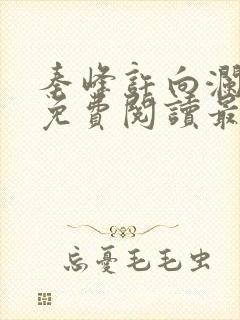 秦峰許向瀾
免費閱讀最
忘憂毛毛虫